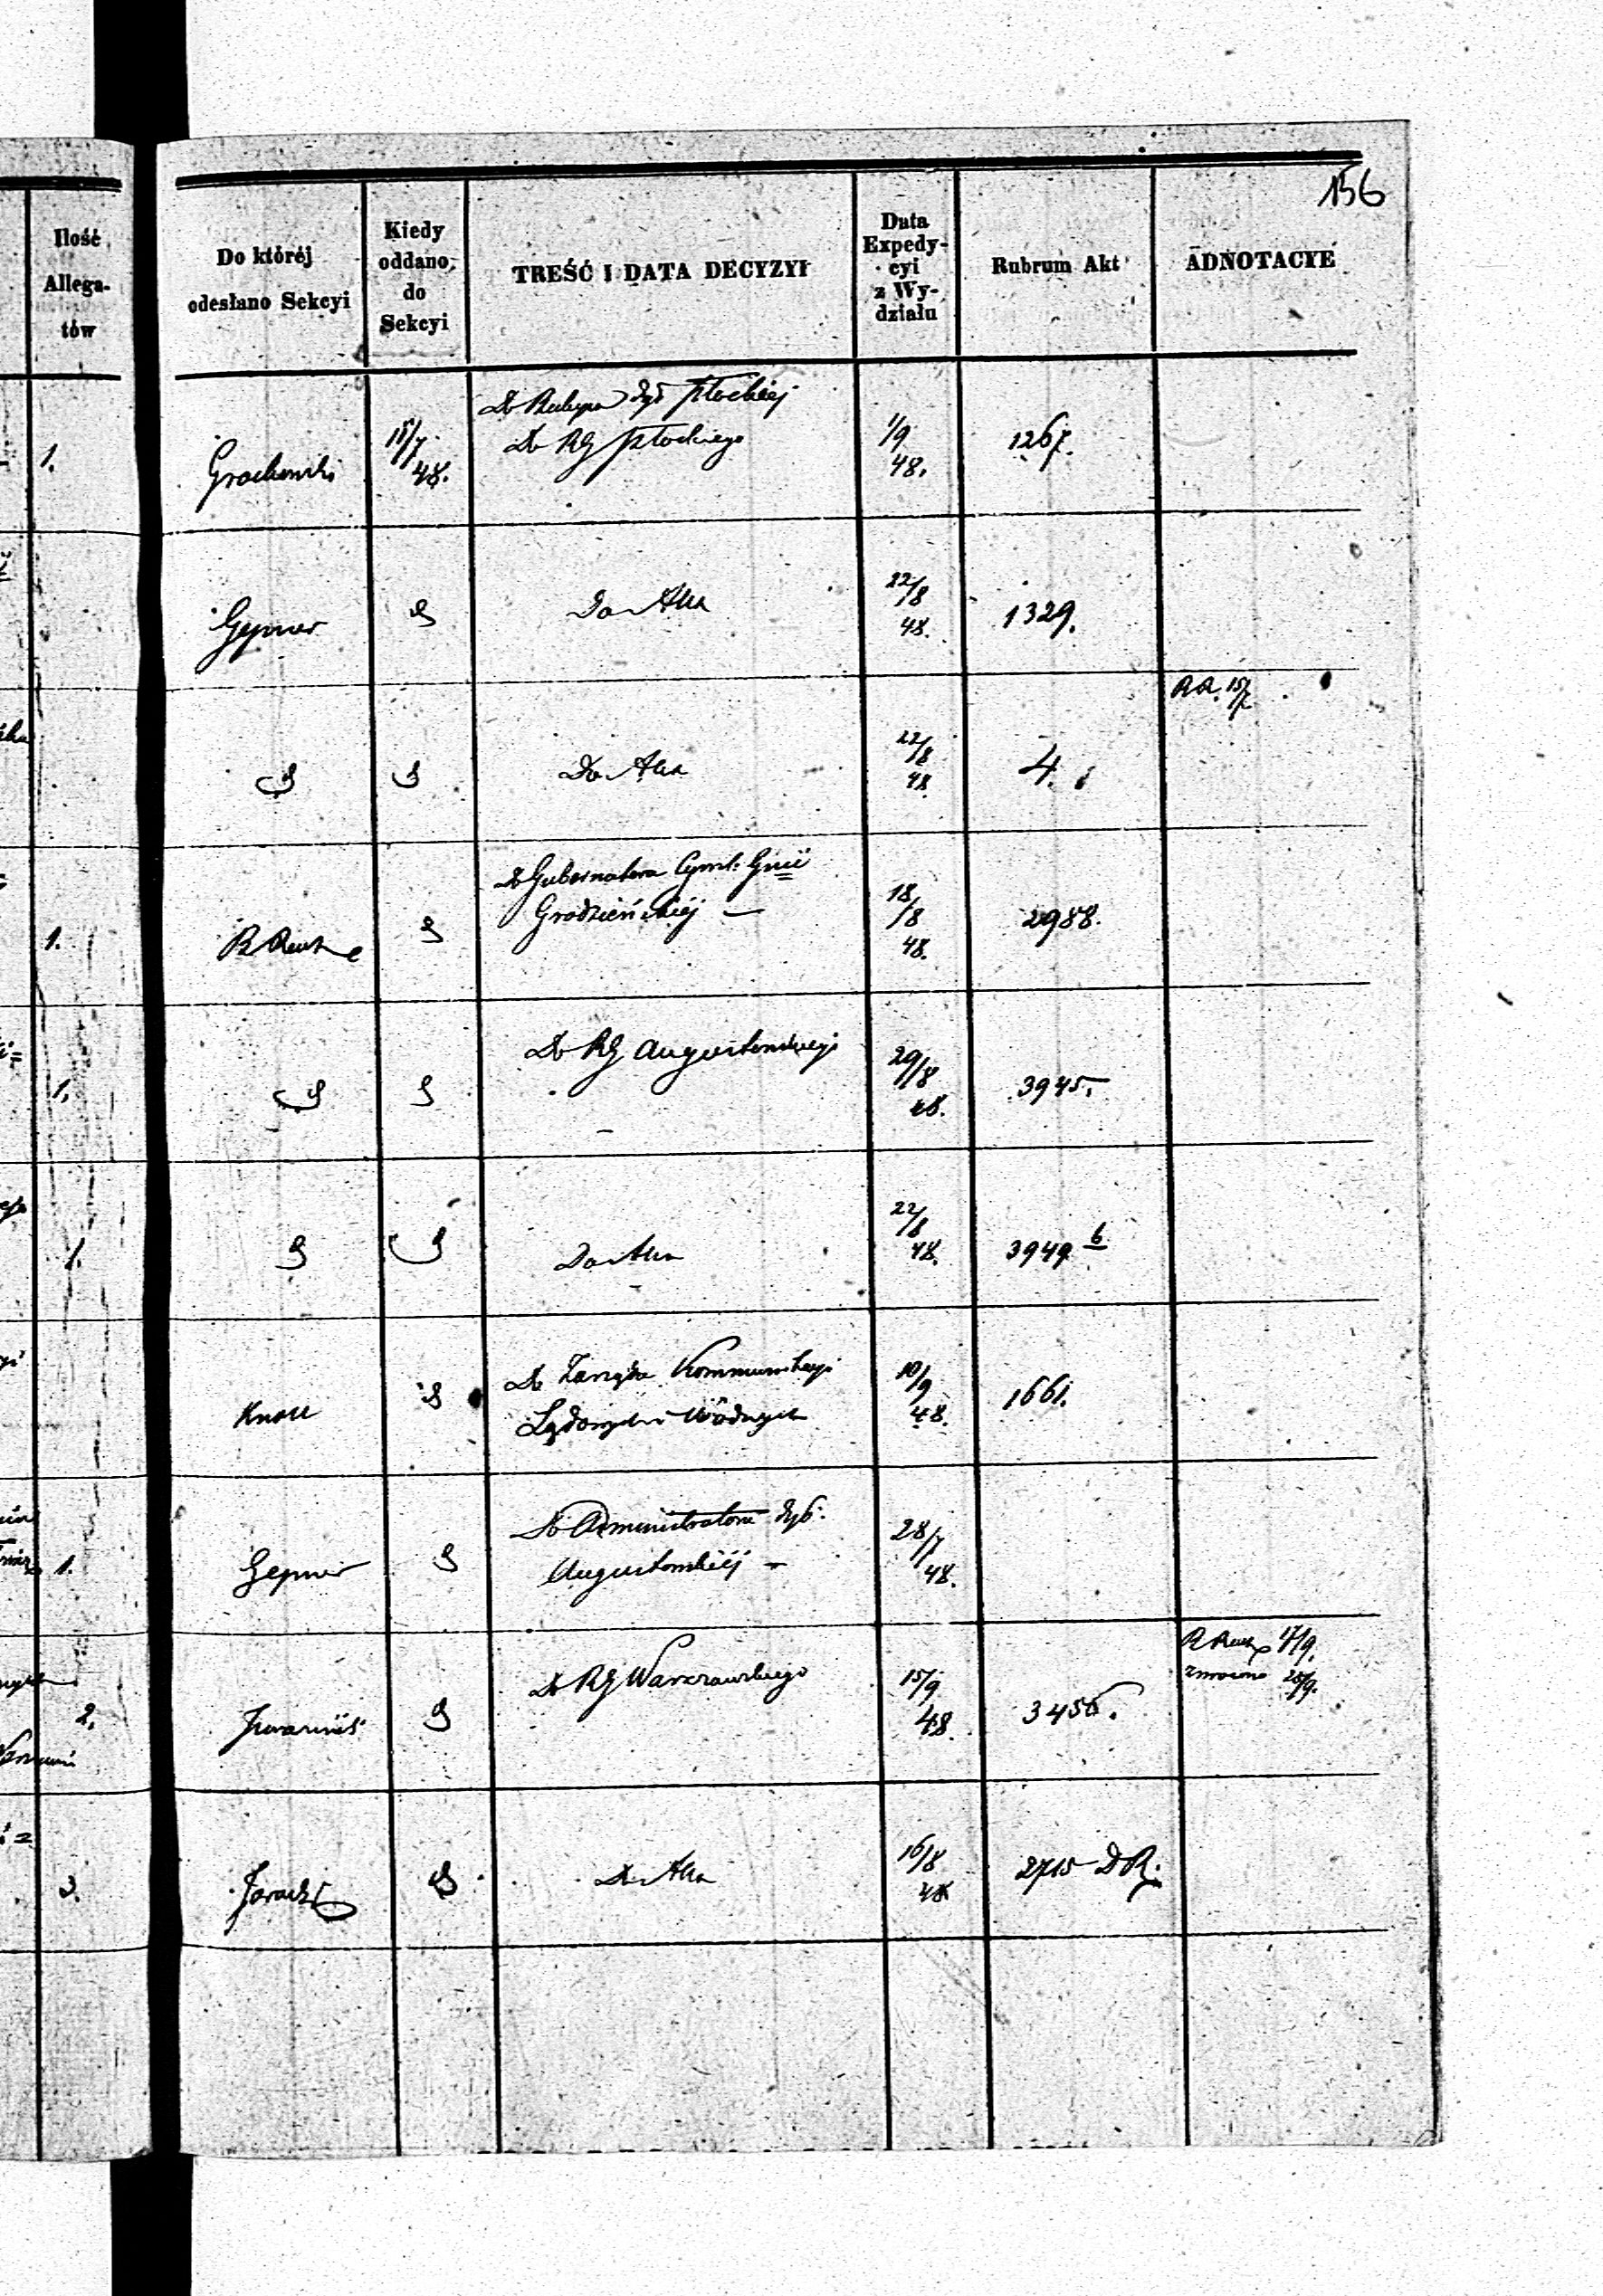 156
Ilość
Allega-
tów
Do któréj
odesłano Sekcyi
Kiedy
oddano
do
Sekcyi
TREŚĆ I DATA DECYZYI
Data
Expedy-
cyi
z Wy-
działu
Rubrum Akt
ADNOTACYE
1.
Grochowski
15/7
48.
Do Biskupa Dyd Płockiej
Do RG Płockiego
1/9
48.
1267.
Gepner
Do Akt
22/8
48.
1329.
RR. 15/7
Do Akt
22/8
48
4.
1.
Do Gubernatora Cywil: Gnii
Grodzieńskiéj —
18/8
48.
2988.
1.
Do RG Augustowskiego
29/8
48.
3945.
1.
Do Akt
22/8
48.
3949 b
Knoll
Do Zarządu Kommunikacyi
Lądowych i Wodnych
10/9
48.
1661.
1.
Gepner
Do Administratora Dyd:
Augustowskiéj —
28/7
48.
2.
Do RG Warszawskiego
15/9
48.
3456.
17/9.
zwrócono 25/9.
3.
Do Akt
16/8
48
2715 DR.